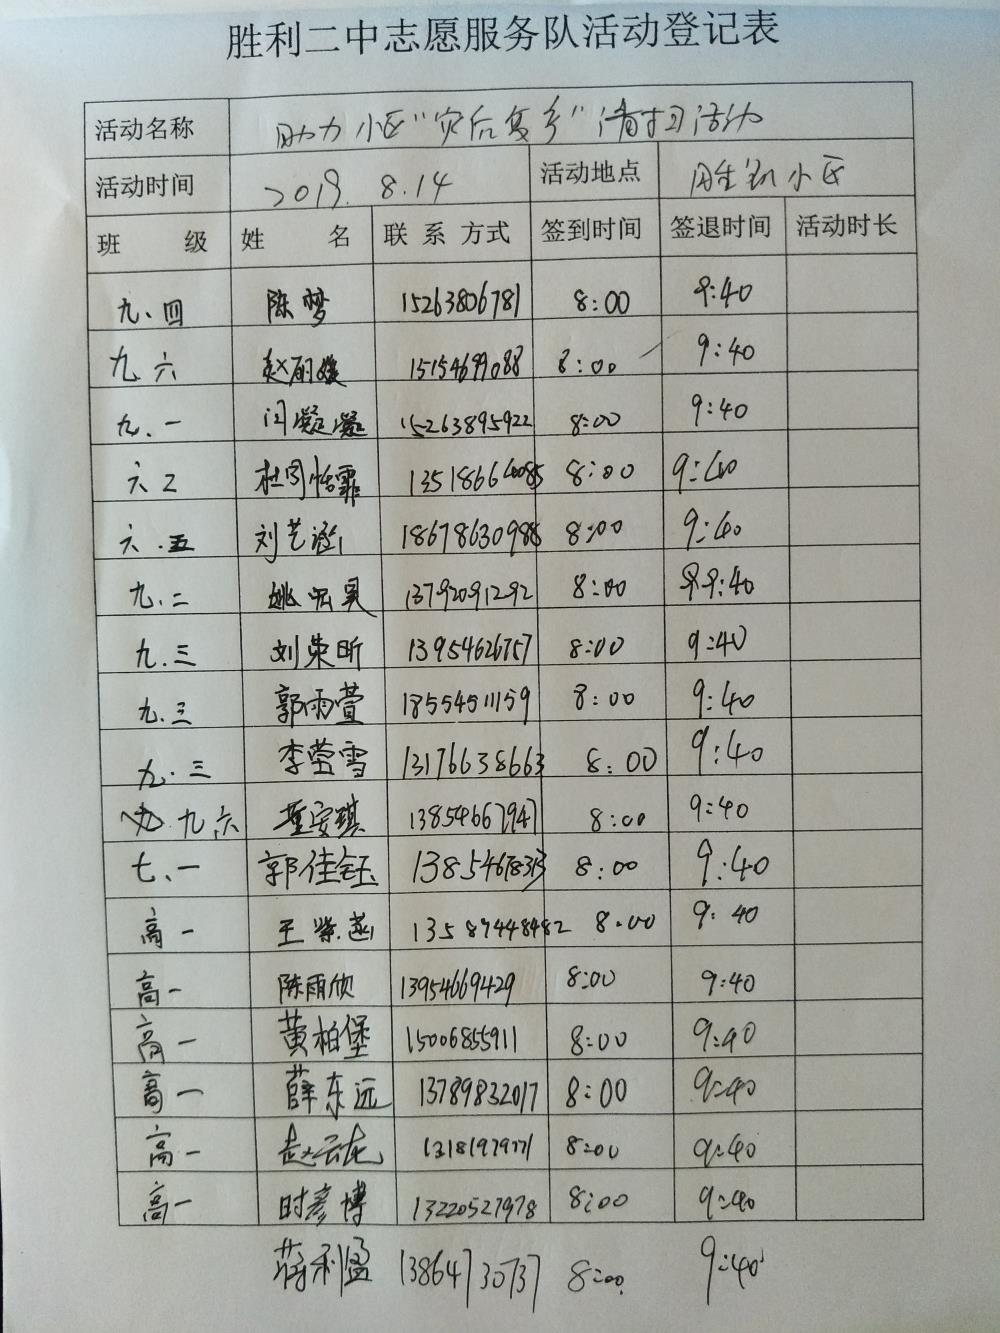 胜利二中志愿服务队活动登记表
活动名称 助力小区"灾后复乡"清扫活动
活动时间 2019. 8.14 活动地点 胜利小区
班 级 姓 名 联系方式 签到时间 签退时间 活动时长
九、四 陈梦 15263806781 8:00 9:40
九.六 赵丽媛 15154699088 8:00 9:40
九、一 闫凝凝 15263895922 8:00 9:40
六 2 杜雨恬霏 8:00 9:40
六.五 刘艺涵 18678630988 8:00 9:40
九.二 姚 昊 13792091292 8:00 9:40
九.三 刘荣昕 13954626757 8:00 9:40
九.三 郭雨萱 18554511159 8:00 9:40
九.三 李莹雪 13176638663 8:00 9:40
九六 董安琪 13854667947 8:00 9:40
七、一 郭佳钰 8:00 9:40
高一 王紫菡 13589448482 8:00 9:40
高一 陈雨欣 13954669429 8:00 9:40
高一 黄柏堡 15006855911 8:00 9:40
高一 薛东远 13789832017 8:00 9:40
高一 赵云龙 13181979771 8:00 9:40
高一 时彦博 13220527978 8:00 9:40
蒋利盈 13864730737 8:00 9:40